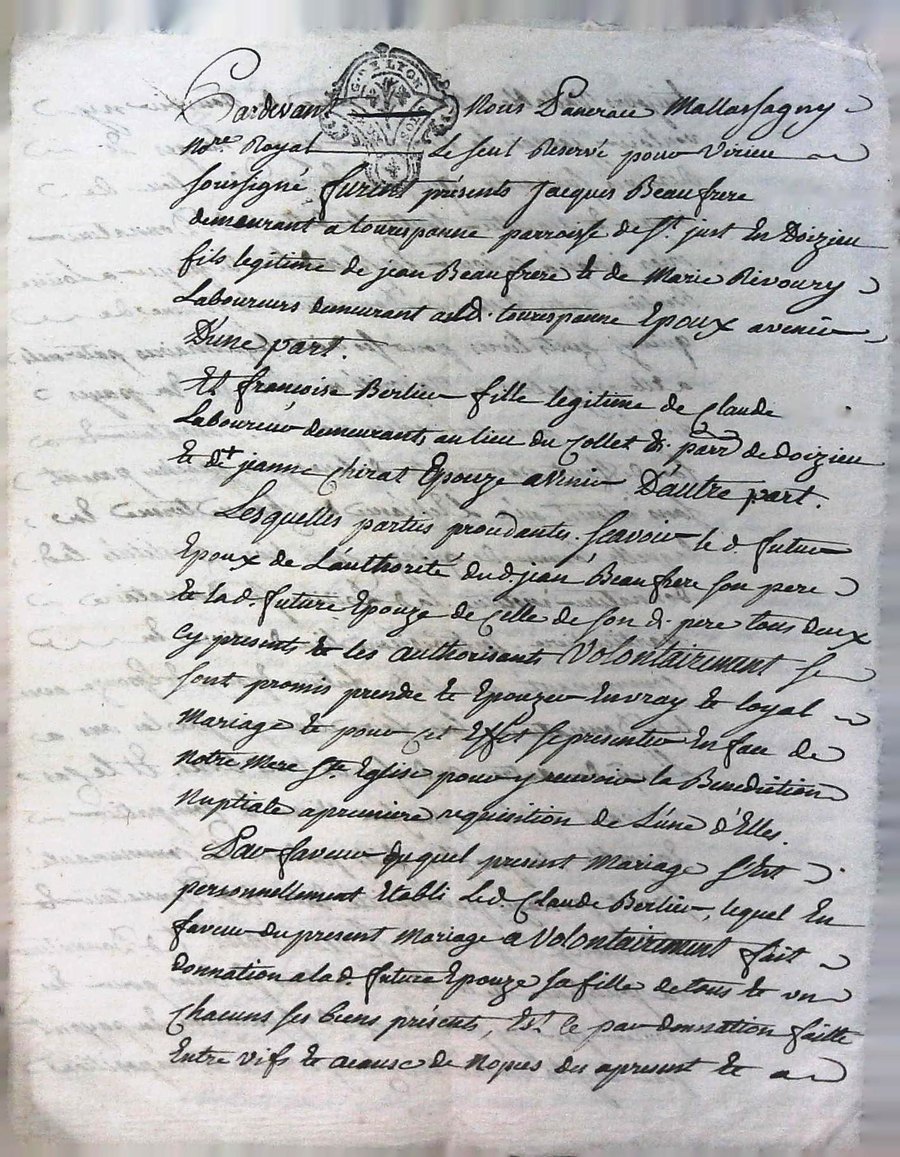 Pardevant Nous Pancrace Mallassagny
No.re Royal le seul Reservé pour Virieu
soussigné furent présents Jacques Beaufrere
demeurant a tourepanne parroisse de St. just En Doizieu
fils legitime de jean Beaufrere & de Marie Rivoury
Laboureurs demeurant audt. tourepanne Epoux avenir
D'une part.
Et francoise Berlier fille legitime de Claude
Laboureur demeurants au lieu du Collet d. parr de doizieu
& dt jeanne Chirat Epouze avenir D'autre part.
Lesquelles parties procedants. scavoir le d. futur
Epoux de L'authorité dud. jean Beaufrere son pere
& lad. future Epouze de Celle de son d. pere tous deux
cy presents & les authorisants Volontairement se
sont promis prendre & Epouzer En vray & loyal
Mariage & pour cet Effet se presenter En face de
Notre Mere Ste Eglise pour y recevoir la Benediction
Nuptiale a premiere requisition de L'une d'Elles.
En faveur duquel present Mariage s'est
personnellement Etabli Led. Claude Berlier, lequel En
faveur du present Mariage a Volontairement fait
donnation a lad. future Epouze sa fille de tous & un
Chacuns ses biens présents, Est Ce par donnation faitte
Entre vifs & acause de Nopces du apresent &